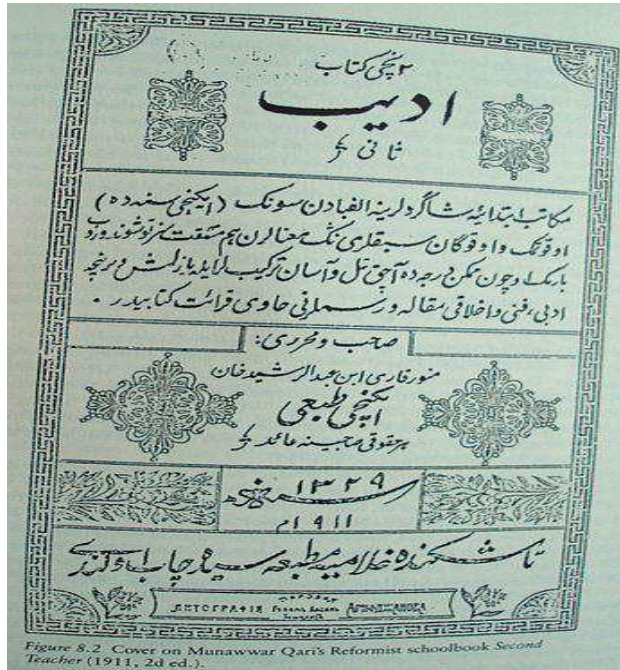 ۲ نچی کتاب
ادیب
ثانی
مکاتب ابتدائیه شاگردلرینه الفبادن سونک (ایکنچی سنه ده)
اوقوتمک و اوقوگان سبقلری نک معنالرن هم مشقت سز توشوندورب
بارمک اوچون ممکن درجه ده آچیق تل و آسان ترکیب لر ایله یازلمش و برنچه
ادبی، فنی و اخلاقی مقاله و رسملرنی حاوی قرائت کتابیدر.
صاحب و محرری:
منور قاری ابن عبدالرشید خان
ایکنچی طبعی
هر حقوقی صاحبینه عائددر
سنه ۱۳۲۹
۱۹۱۱م
تاشکندده غلامیه مطبعه سیده چاپ اولندی
ЛИТОГРАФІЯ Гулямъ Хасанъ АРИФДЖАНОВА
Figure 8.2 Cover on Munawwar Qari's Reformist schoolbook Second
Teacher (1911, 2d ed.).